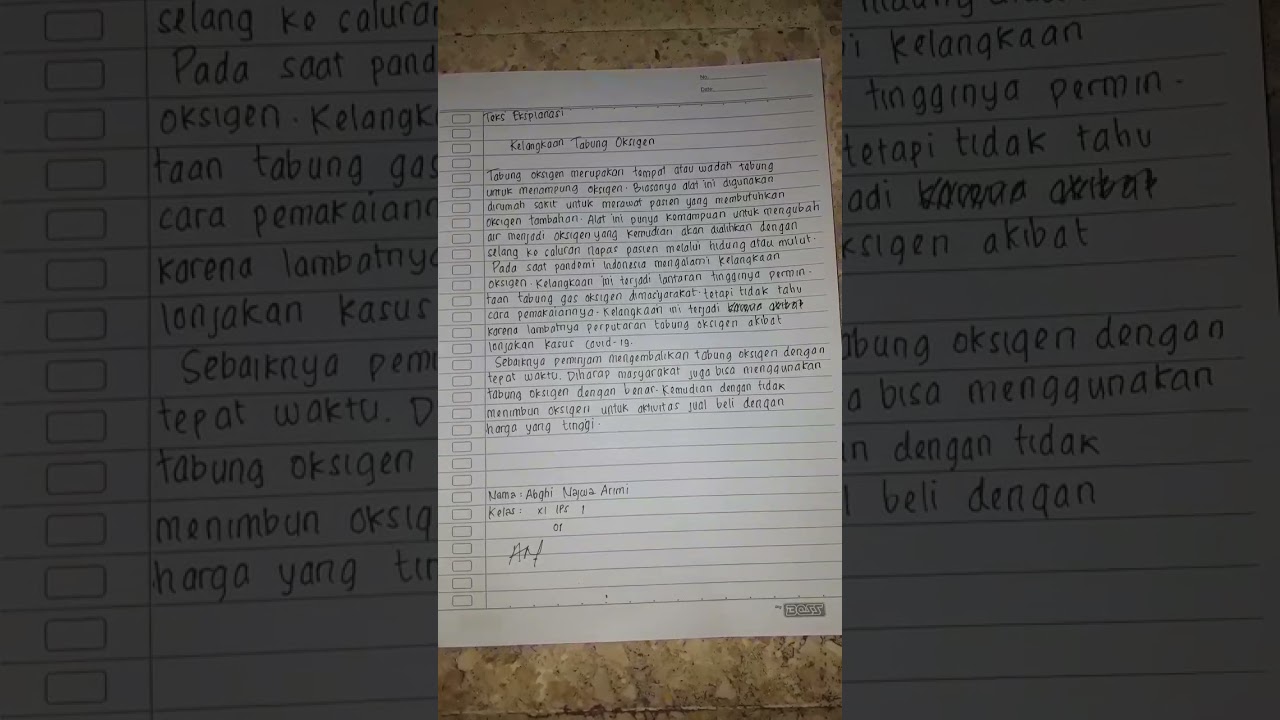 No.
Date.
Teks Eksplanasi
Kelangkaan Tabung Oksigen
Tabung oksigen merupakan tempat atau wadah tabung
untuk menampung oksigen. Biasanya alat ini digunakan
dirumah sakit untuk merawat pasien yang membutuhkan
oksigen tambahan. Alat ini punya kemampuan untuk mengubah
air menjadi oksigen yang kemudian akan dialihkan dengan
selang ke saluran napas pasien melalui hidung atau mulut.
Pada saat pandemi Indonesia mengalami kelangkaan
oksigen. Kelangkaan ini terjadi lantaran tingginya permin-
taan tabung gas oksigen dimasyarakat. tetapi tidak tahu
cara pemakaiannya. Kelangkaan ini terjadi karena akibat
karena lambatnya perputaran tabung oksigen akibat
lonjakan kasus covid-19.
Sebaiknya peminjam mengembalikan tabung oksigen dengan
tepat waktu. Diharap masyarakat juga bisa menggunakan
tabung oksigen dengan benar. Kemudian dengan tidak
menimbun oksigen untuk aktivitas jual beli dengan
harga yang tinggi.
Nama : Abghi Najwa Arimi
Kelas : XI IPS 1
01
BOSS